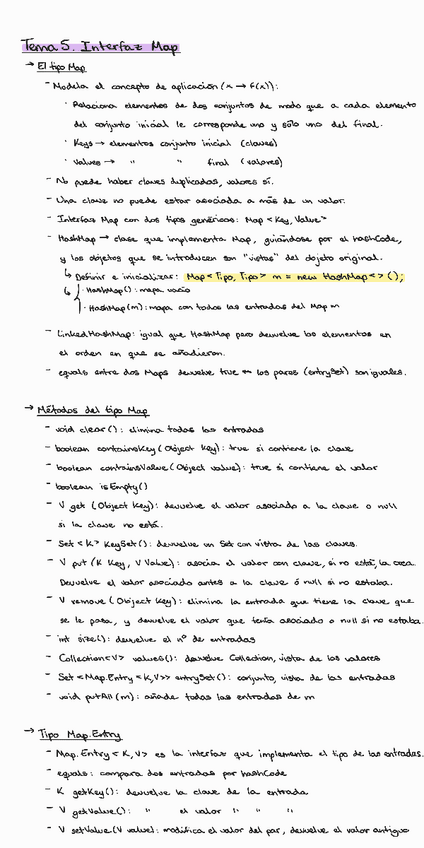 Tema 5. Interfaz Map
→ El tipo Map
- Modela el concepto de aplicación (x → f(x)):
· Relaciona elementos de dos conjuntos de modo que a cada elemento
del conjunto inicial le corresponde uno y sólo uno del final.
· Keys → elementos conjunto inicial (claves)
· Values → " " final (valores)
- No puede haber claves duplicadas, valores sí.
- Una clave no puede estar asociada a más de un valor.
- Interfaz Map con dos tipos genéricos: Map <Key, Value>
- HashMap → clase que implementa Map, guiándose por el hashCode,
y los objetos que se introducen son "vistas" del objeto original.
↳ Definir e inicializar: Map<Tipo, Tipo> m = new HashMap<>();
↳ · HashMap(): mapa vacío
· HashMap(m): mapa con todas las entradas del Map m
- LinkedHashMap: igual que HashMap pero devuelve los elementos en
el orden en que se añadieron.
- equals entre dos Maps devuelve true ↔ los pares (entrySet) son iguales.
→ Métodos del tipo Map
- void clear(): elimina todas las entradas
- boolean containsKey (Object key): true si contiene la clave
- boolean containsValue (Object value): true si contiene el valor
- boolean isEmpty()
- V get (Object key): devuelve el valor asociado a la clave o null
si la clave no está.
- Set <K> KeySet(): devuelve un Set con vista de las claves.
- V put (K Key, V Value): asocia el valor con clave, si no está, la crea.
Devuelve el valor asociado antes a la clave ó null si no estaba.
- V remove (Object Key): elimina la entrada que tiene la clave que
se le pasa, y devuelve el valor que tenía asociado o null si no estaba.
- int size(): devuelve el nº de entradas
- Collection<V> values(): devuelve Collection, vista de los valores
- Set <Map.Entry <K,V>> entrySet(): conjunto, vista de las entradas
- void putAll (m): añade todas las entradas de m
→ Tipo Map.Entry
- Map.Entry <K,V> es la interfaz que implementa el tipo de las entradas.
- equals: compara dos entradas por hashCode
- K getKey(): devuelve la clave de la entrada
- V getValue(): " el valor " " "
- V setValue (V value): modifica el valor del par, devuelve el valor antiguo